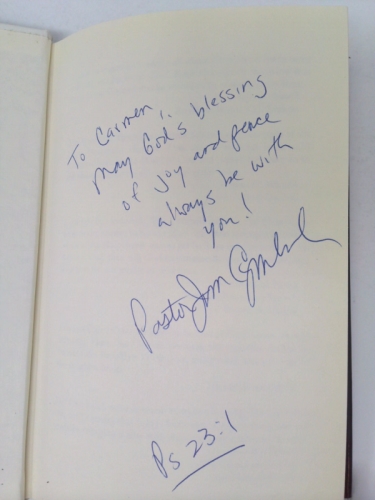 To Carmen,
May God's blessing
of joy and peace
always be with
you!
Pastor Jim Cymbala
Ps 23:1